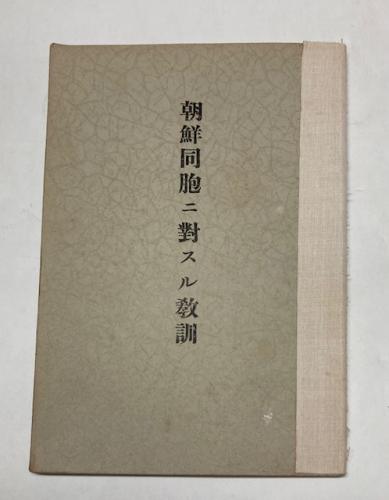 朝鮮同胞ニ對スル教訓